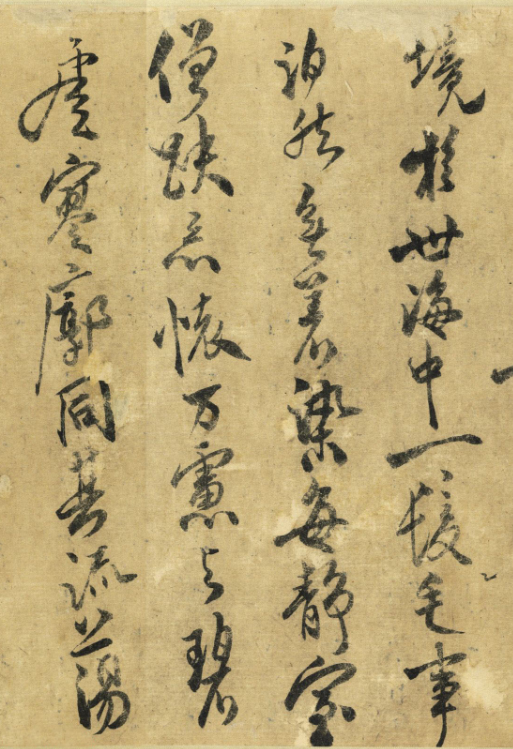 境於世海中一髮毛事
泊然無著染每靜室
僧趺忘懷万慮与碧
虛寥廓同其流蕩